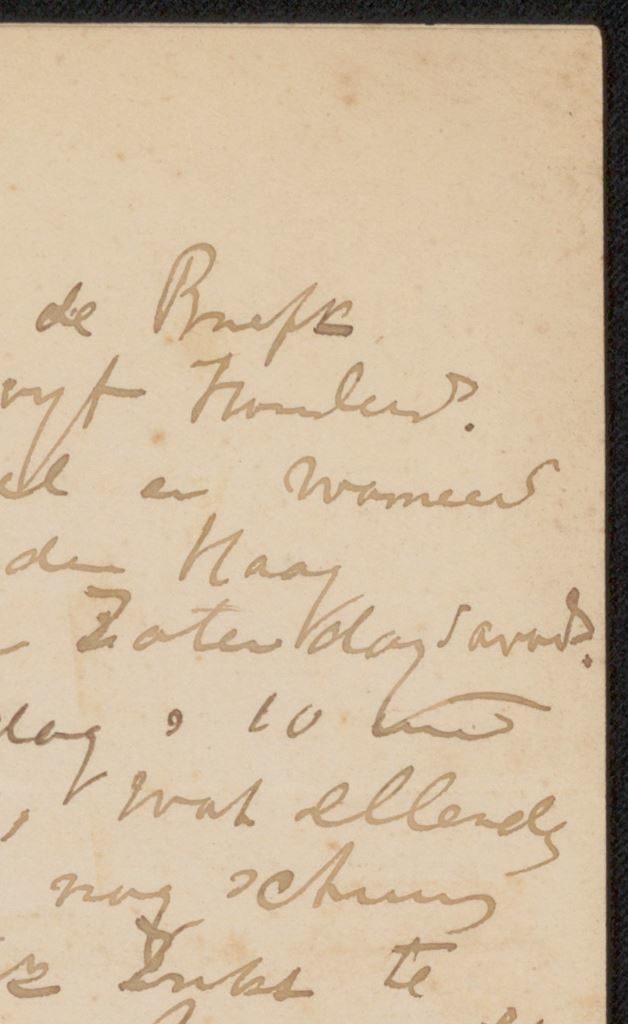 de Briefk
vijf honderd.
el en wanneer
den Haag
Zaterdag's avonds.
dag, 10 uur
, wat ellendig
nog schuins
te